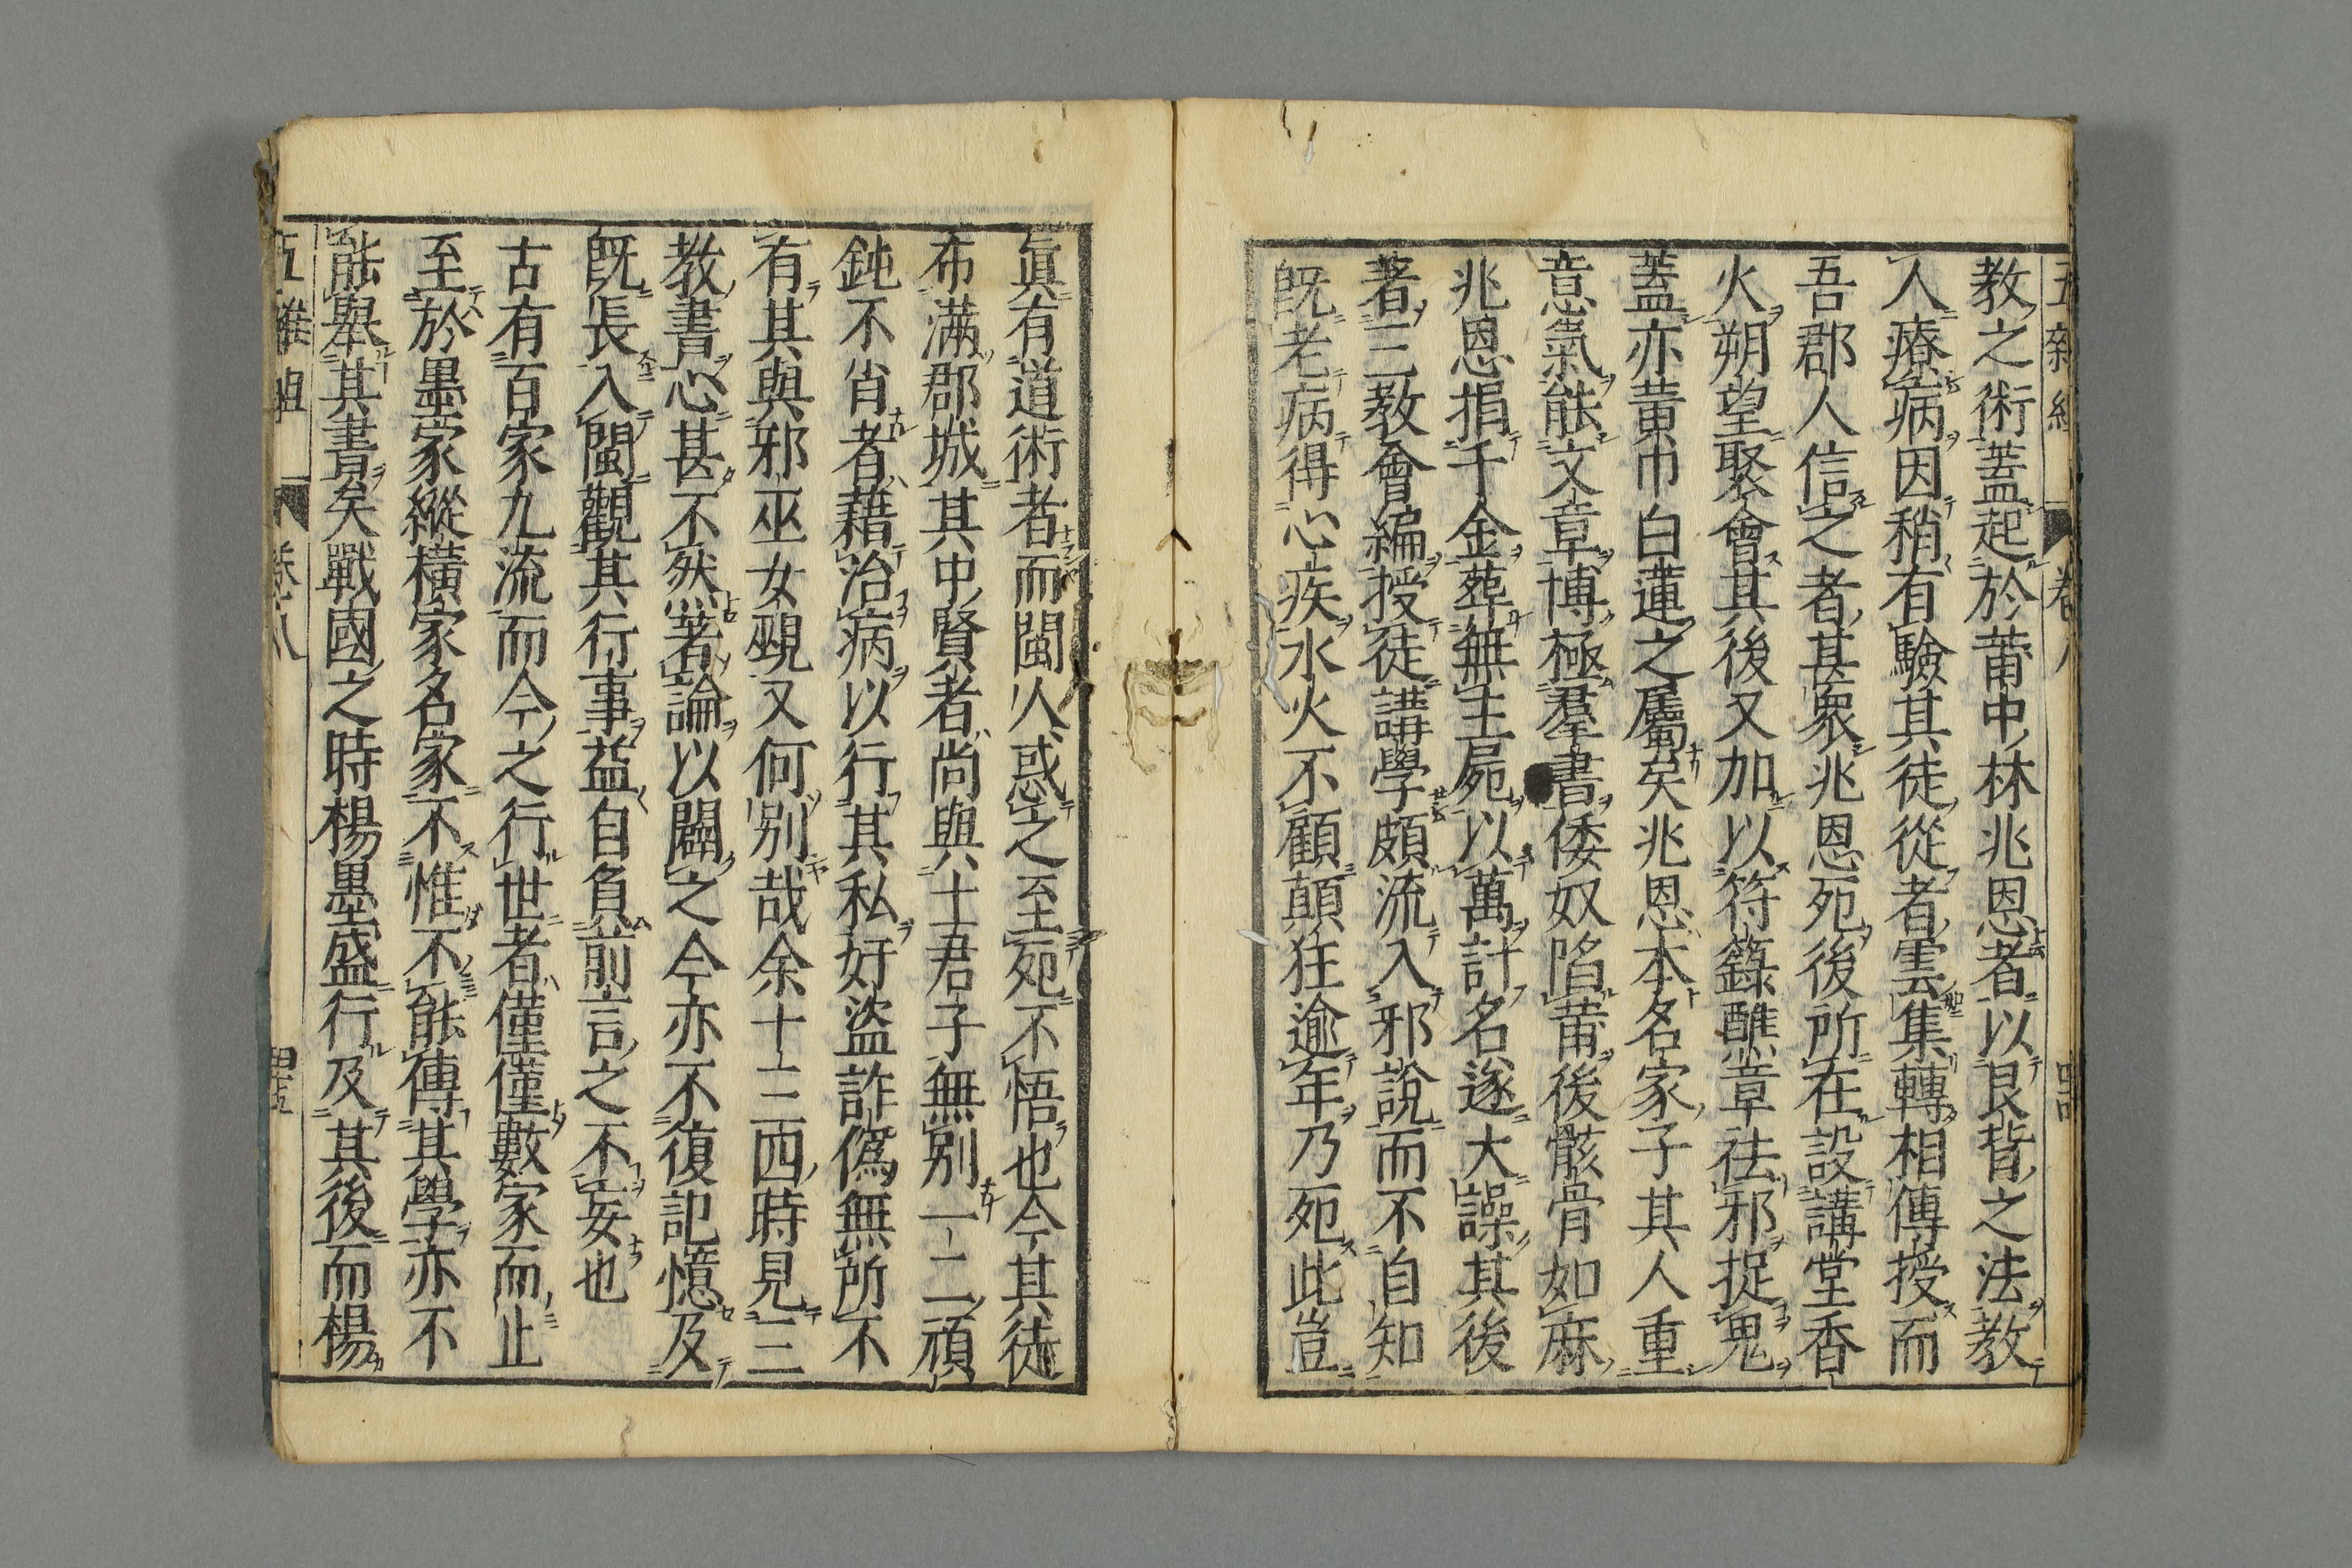 教之術蓋起於莆中林兆恩者以艮背之法教
人療病因稍有驗其徒從者雲集轉相傳授而
吾郡人信之者甚衆兆恩死後所在設講堂香
火朔望聚會其後又加以符籙醮章祛邪捉鬼
蓋亦黄巾白蓮之屬矣兆恩本名家子其人重
意氣能文章博極羣書倭奴陷莆後骸骨如麻
兆恩捐千金葬無主屍以萬計名遂大譟其後
著三教會編授徒講學頗流入邪說而不自知
旣老病得心疾水火不顧顛狂逾年乃死此豈
眞有道術者而閩人惑之至死不悟也今其徒
布滿郡城其中賢者尚與士君子無別一二頑
鈍不肖者藉治病以行其私奸盜詐僞無所不
有其與邪巫女覡又何別哉余十二三四時見三
教書心甚不然著論以闢之今亦不復記憶及
旣長入閩觀其行事益自負前言之不妄也
古有百家九流而今之行世者僅僅數家而止
至於墨家縱橫家名家不惟不能傳其學亦不
能舉其書矣戰國之時楊墨盛行及其後而楊
五雜組
卷八
四五